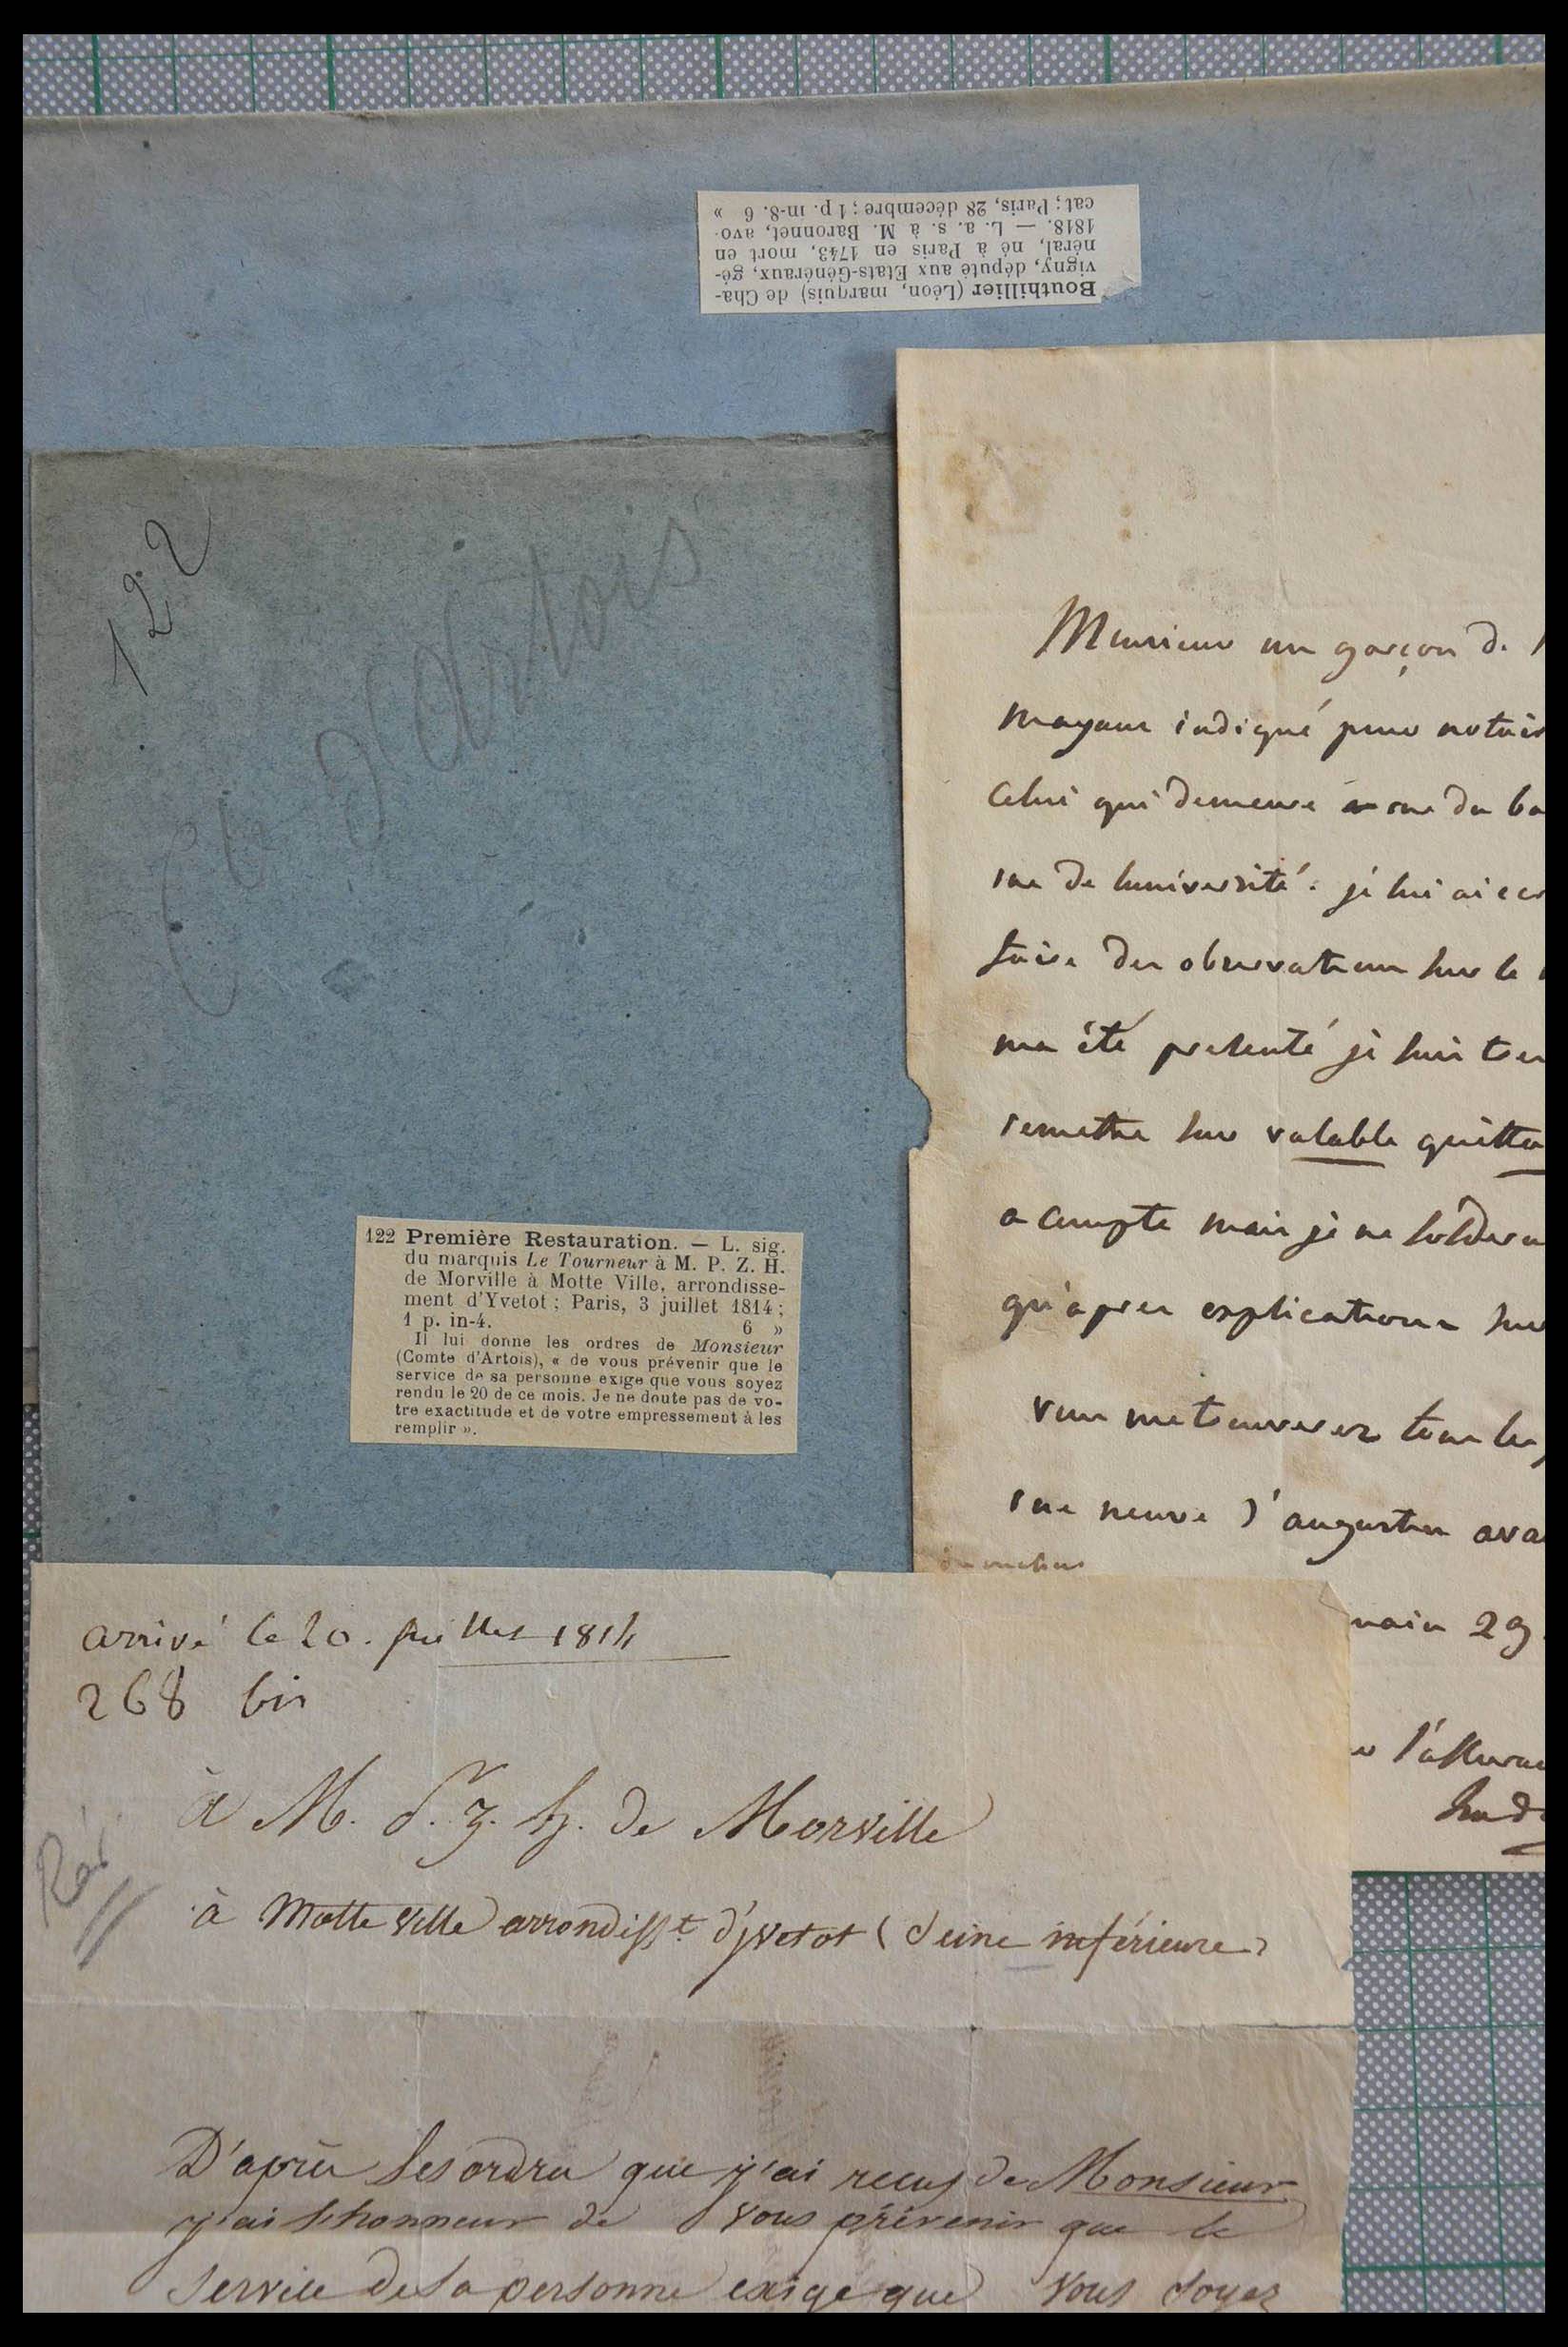 Bouthillier (Léon, marquis) de Cha-
vigny, député aux Etats-Généraux, gé-
néral, né à Paris en 1743, mort en
1818. — L. a. s. à M. Baronnet, avo-
cat; Paris, 28 décembre; 1 p. in-8. 6 »
122
Cte d'Artois
122 Première Restauration. — L. sig.
du marquis Le Tourneur à M. P. Z. H.
de Morville à Motte Ville, arrondisse-
ment d'Yvetot; Paris, 3 juillet 1814;
1 p. in-4. 6 »
Il lui donne les ordres de Monsieur
(Comte d'Artois), « de vous prévenir que le
service de sa personne exige que vous soyez
rendu le 20 de ce mois. Je ne doute pas de vo-
tre exactitude et de votre empressement à les
remplir ».
Monsieur un garçon de
indiqué pour notair
celui qui demeure rue du ba
rue de luniversité. je lui ai ecr
faire des observations sur le
ma été presenté je suis
remettre sur valable quitta
a compte mais je ne solderai
qu'apres explications sur
vous me trouverez tous les
rue neuve St augustin ava
29
arrivé le 20. juillet 1814
268 bis
à M. P. Z. H. de Morville
à Motte Ville arrondisst d'yvetot (Seine inférieure)
D'après les ordres que j'ai reçus de Monsieur
j'ai l'honneur de vous prévenir que le
service de sa personne exige que vous soyez